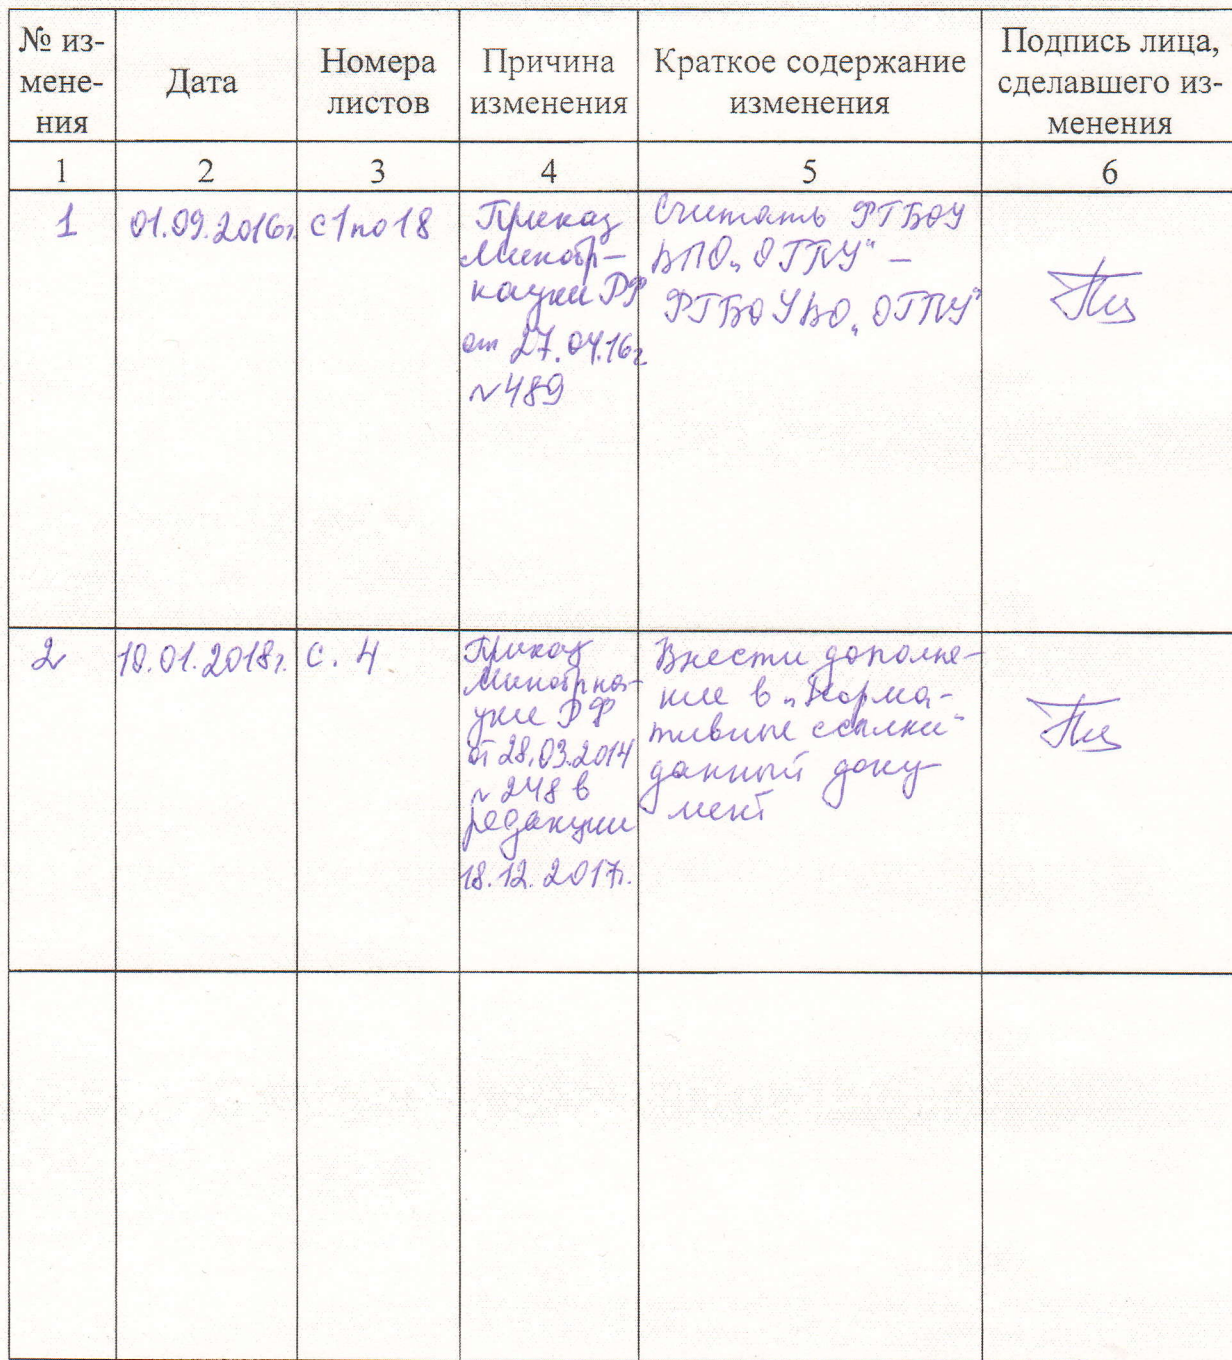 № из-
мене-
ния
Дата
Номера
листов
Причина
изменения
Краткое содержание
изменения
Подпись лица,
сделавшего из-
менения
1
2
3
4
5
6
1
01.09.2016г.
с 1 по 18
Приказ
Минобр-
науки РФ
от 27.04.16г
№489
Считать ФГБОУ
ВПО „ОГПУ" –
ФГБОУ ВО „ОГПУ"
2
10.01.2018г.
с. 4
Приказ
Минобрна-
уки РФ
от 28.03.2014
№ 248 в
редакции
18.12.2017г.
Внести дополне-
ние в „Норма-
тивные ссылки"
данный доку-
мент